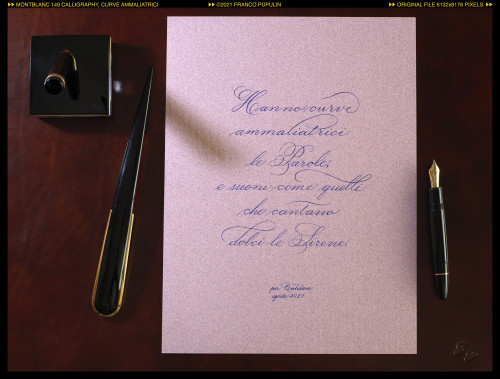 MONTBLANC 149 CALLIGRAPHY, CURVE AMMALIATRICI
©2021 FRANCO PUPULIN
ORIGINAL FILE 6132x8176 PIXELS
Hanno curve
ammaliatrici
le Parole,
e suoni, come quelli
che cantano
dolci le Sirene.
2021